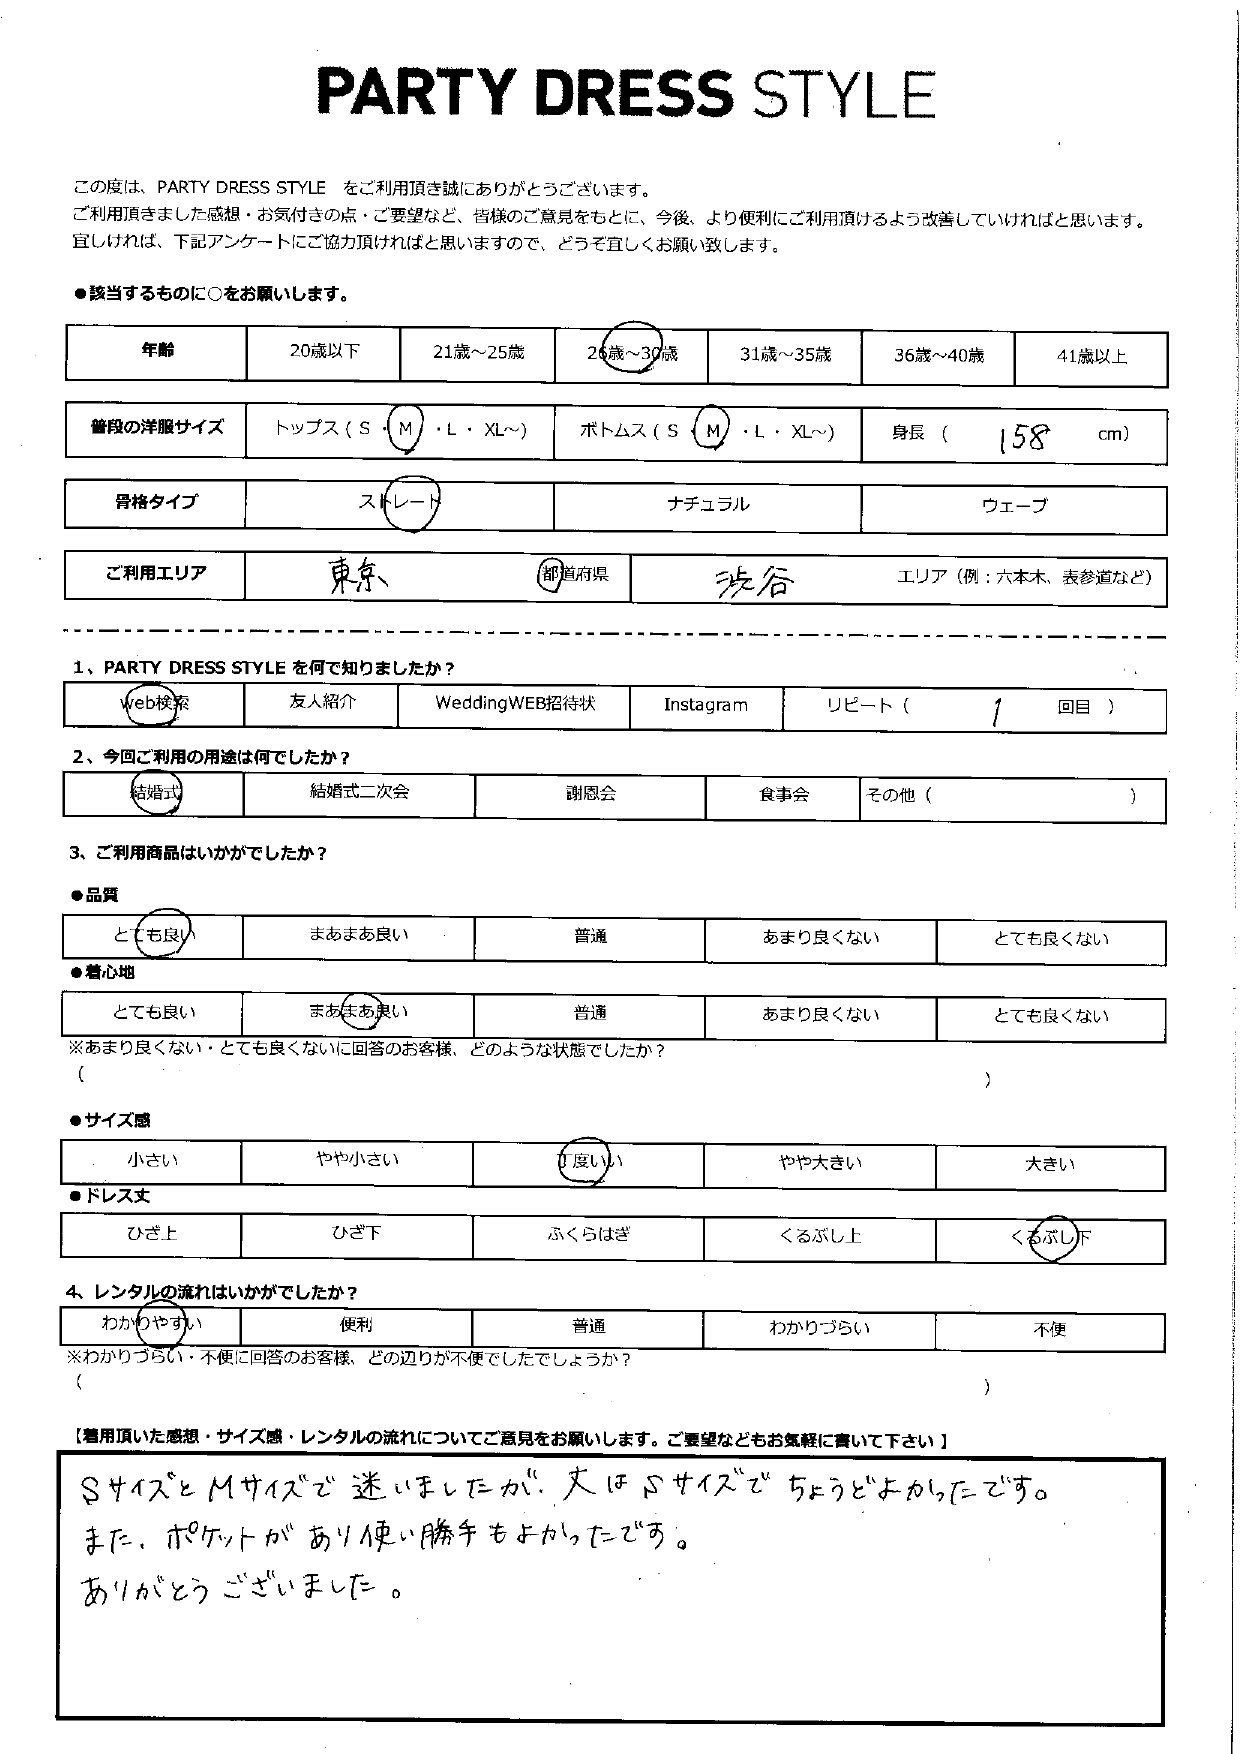 PARTY DRESS STYLE
この度は、PARTY DRESS STYLE をご利用頂き誠にありがとうございます。
ご利用頂きました感想・お気付きの点・ご要望など、皆様のご意見をもとに、今後、より便利にご利用頂けるよう改善していければと思います。
宜しければ、下記アンケートにご協力頂ければと思いますので、どうぞ宜しくお願い致します。
●該当するものに○をお願いします。
年齢 20歳以下 21歳～25歳 26歳～30歳 31歳～35歳 36歳～40歳 41歳以上
普段の洋服サイズ トップス ( S ・ M ・ L ・ XL～) ボトムス ( S ・ M ・ L ・ XL～) 身長 ( 158 cm)
骨格タイプ ストレート ナチュラル ウェーブ
ご利用エリア 東京 都道府県 渋谷 エリア（例：六本木、表参道など）
1、PARTY DRESS STYLE を何で知りましたか？
Web検索 友人紹介 WeddingWEB招待状 Instagram リピート ( 1 回目 )
2、今回ご利用の用途は何でしたか？
結婚式 結婚式二次会 謝恩会 食事会 その他 ( )
3、ご利用商品はいかがでしたか？
●品質
とても良い まあまあ良い 普通 あまり良くない とても良くない
●着心地
とても良い まあまあ良い 普通 あまり良くない とても良くない
※あまり良くない・とても良くないに回答のお客様、どのような状態でしたか？
( )
●サイズ感
小さい やや小さい 丁度いい やや大きい 大きい
●ドレス丈
ひざ上 ひざ下 ふくらはぎ くるぶし上 くるぶし下
4、レンタルの流れはいかがでしたか？
わかりやすい 便利 普通 わかりづらい 不便
※わかりづらい・不便に回答のお客様、どの辺りが不便でしたでしょうか？
( )
【着用頂いた感想・サイズ感・レンタルの流れについてご意見をお願いします。ご要望などもお気軽に書いて下さい】
SサイズとMサイズで迷いましたが、丈はSサイズでちょうどよかったです。
また、ポケットがあり使い勝手もよかったです。
ありがとうございました。